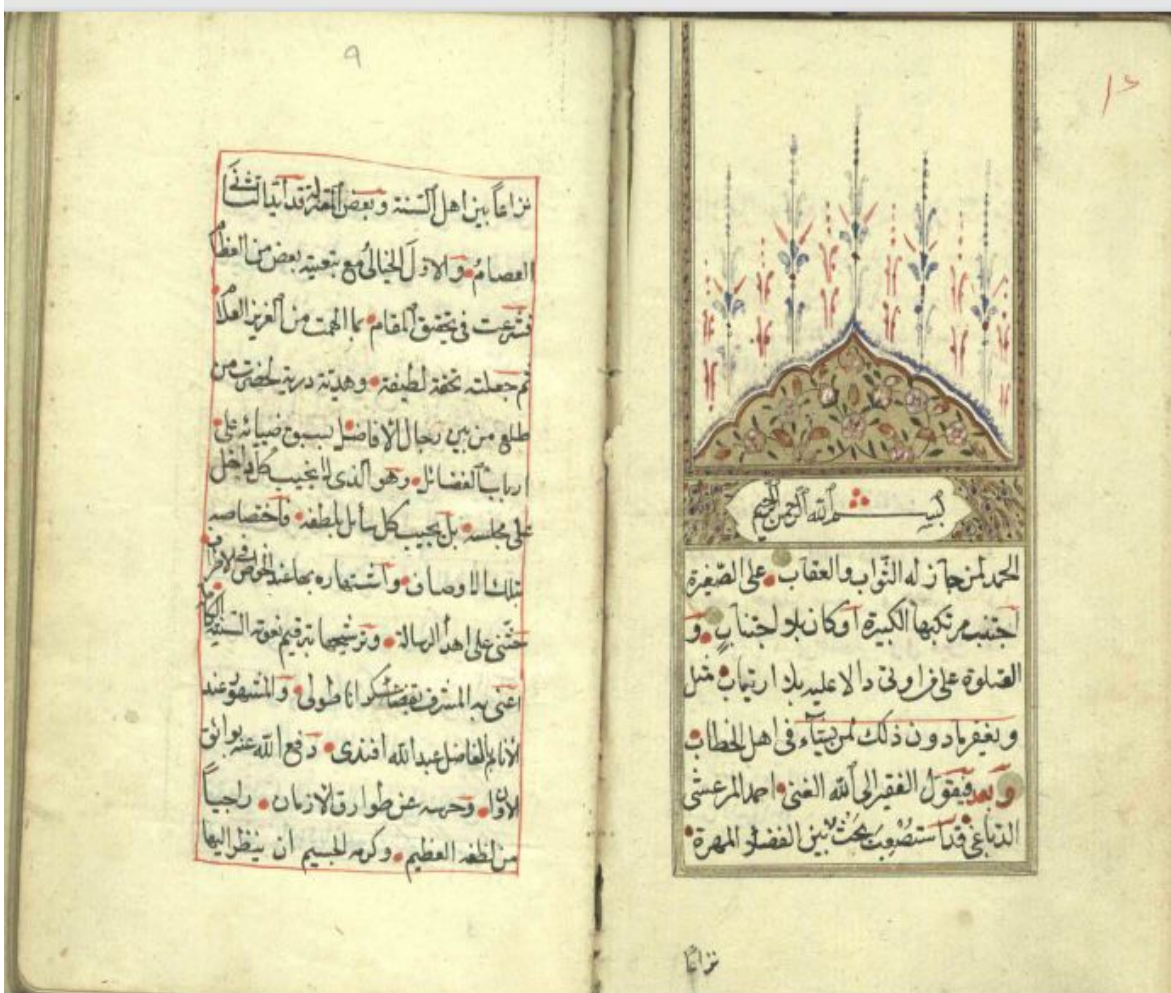 بسم الله الرحمن الرحيم
الحمد لمن جاز له الثواب والعقاب على الصغيرة
اجتنب مرتكبها الكبيرة او كان بلا اجتناب و
الصلوة على من اوتى دالا عليه بلا ارتياب مثل
ويغفر ما دون ذلك لمن يشآء فى اهل الخطاب
وبعد فيقول الفقير الى الله الغنى احمد المرعشى
الدباغى قد استصعبت بحث بين الفضلاء المهرة
نزاعًا
٩
نزاعًا بين اهل السنة وبعض المعتزلة قد
العصام والاول الخيالى مع تبعية بعض من العظا
فشرعت فى تحقيق المقام بما الهمت من العزيز العلام
ثم جعلته تحفة لطيفة وهدية درية لحضرت من
طلع من بين رجال الافاضل بسبوغ ضيائه على
ارباب الفضائل وهو الذى لا يخيب كل داخل
على مجلسه بل يجيب كل سائل بلطفه فاختصاصه
بتلك الاوصاف واشتهاره بها عند الخواص
حثنى على اهداء الرسالة وترشيحها بترقيم نعوته السنية
اعنى به المشرف بقضاء اناطولى والمشهور عند
الأنام بالفاضل عبد الله افندى دفع الله عنه بوائق
الاوان وحرسه عن طوارق الازمان راجياً
من لطفه العظيم وكرمه الجسيم ان ينظر اليها